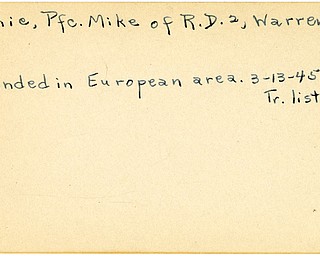 nie, Pfc. Mike of R.D. 2, Warren
nded in European area. 3-13-45
Tr. list